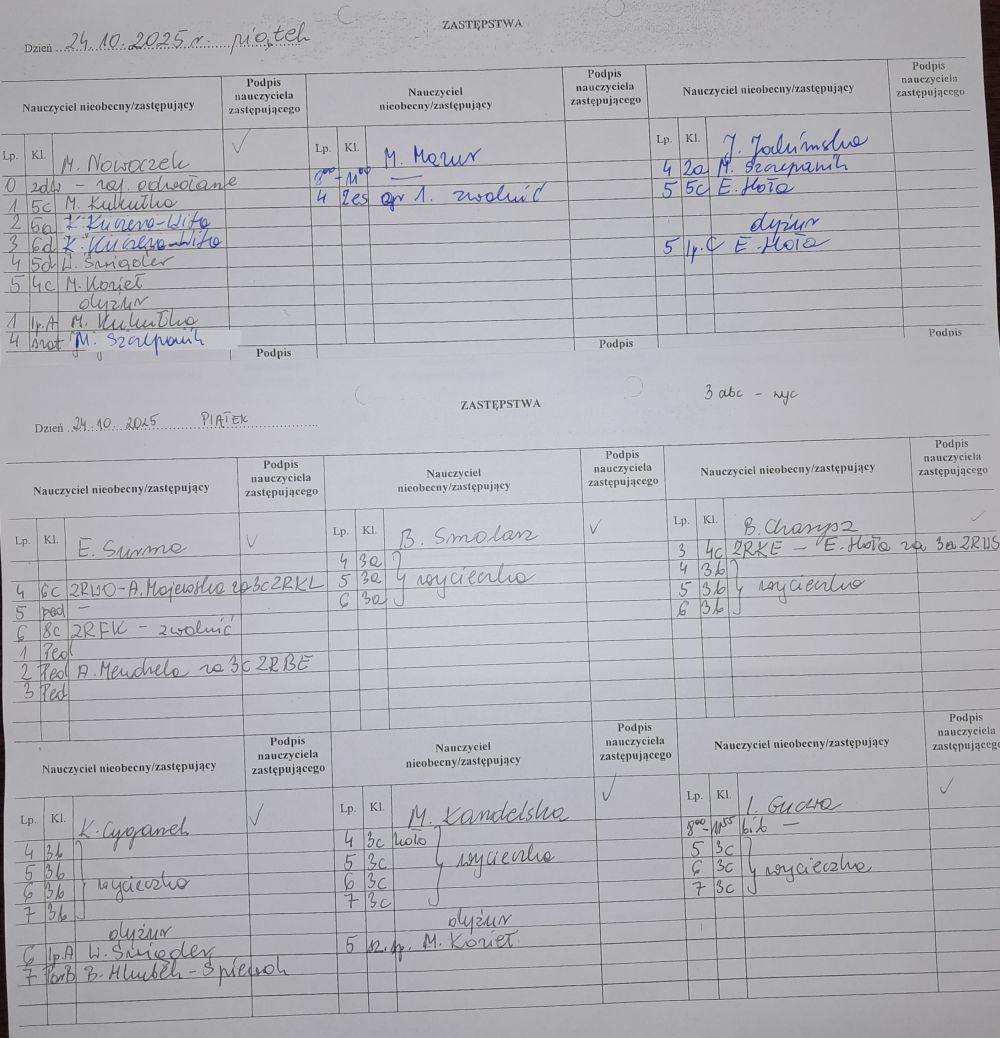 ZASTĘPSTWA
Dzień 24.10.2025 r. piątek
Nauczyciel nieobecny/zastępujący
Podpis nauczyciela zastępującego
Nauczyciel nieobecny/zastępujący
Podpis nauczyciela zastępującego
Nauczyciel nieobecny/zastępujący
Podpis nauczyciela zastępującego
Lp. Kl. M. Nowaczek
0 zdw - zaj. odwołane
1 5c M. Kukułka
2 6a K. Kuczera-Wita
3 6d K. Kuczera-Wita
4 5d W. Śmigoder
5 4c M. Kozieł
dyżur
1 lp.A M. Kukułka
4 M. Szczepanik
Podpis
Lp. Kl. M. Mazur
8⁰⁰-11⁰⁰ —
4 2es gr 1. zwolnić
Podpis
Lp. Kl. J.
4 2a M. Szczepanik
5 5c E. Hoła
dyżur
5 lp.C E. Hoła
Podpis
3 abc - wyc
ZASTĘPSTWA
Dzień 24.10.2025 PIĄTEK
Nauczyciel nieobecny/zastępujący
Podpis nauczyciela zastępującego
Nauczyciel nieobecny/zastępujący
Podpis nauczyciela zastępującego
Nauczyciel nieobecny/zastępujący
Podpis nauczyciela zastępującego
Lp. Kl. E. Surma
4 6c ZRWO-A. Majewska za 3c ZRKL
5 ped —
6 8c ZRFK - zwolnić
1 Ped
2 Ped A. Mendrela za 3c ZRBE
3 Ped
Lp. Kl. B. Smolarz
4 3a
5 3a wycieczka
6 3a
Lp. Kl. B. Charysz
3 4c ZRKE - E. Hoła za 3a ZRWS
4 3b
5 3b wycieczka
6 3b
Nauczyciel nieobecny/zastępujący
Podpis nauczyciela zastępującego
Nauczyciel nieobecny/zastępujący
Podpis nauczyciela zastępującego
Nauczyciel nieobecny/zastępujący
Podpis nauczyciela zastępującego
Lp. Kl. K. Cyganek
4 3b
5 3b
6 3b wycieczka
7 3b
dyżur
6 lp.A W. Śmigoder
7 B. Hlubek-Śpiewok
Lp. Kl. M. Kandelska
4 3c koło
5 3c wycieczka
6 3c
7 3c
dyżur
5 M. Kozieł
Lp. Kl. I. Gudra
8⁰⁰-11⁵⁵ bib —
5 3c
6 3c wycieczka
7 3c